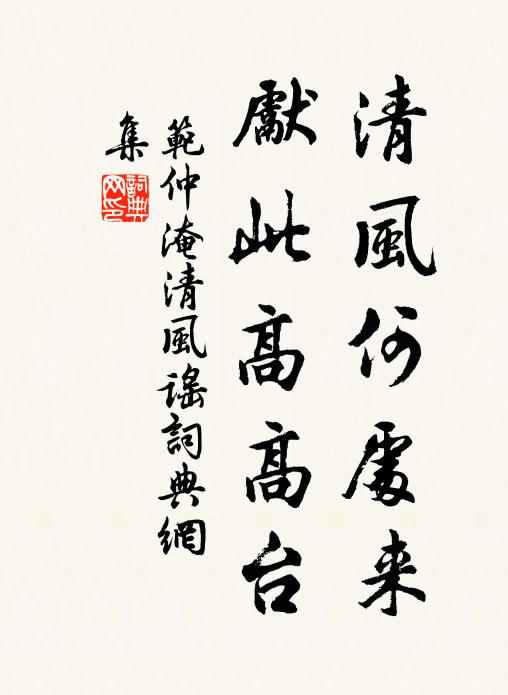 清風何處来
獻此高高台
範仲淹清風謠詞典網
集
詞典
网印